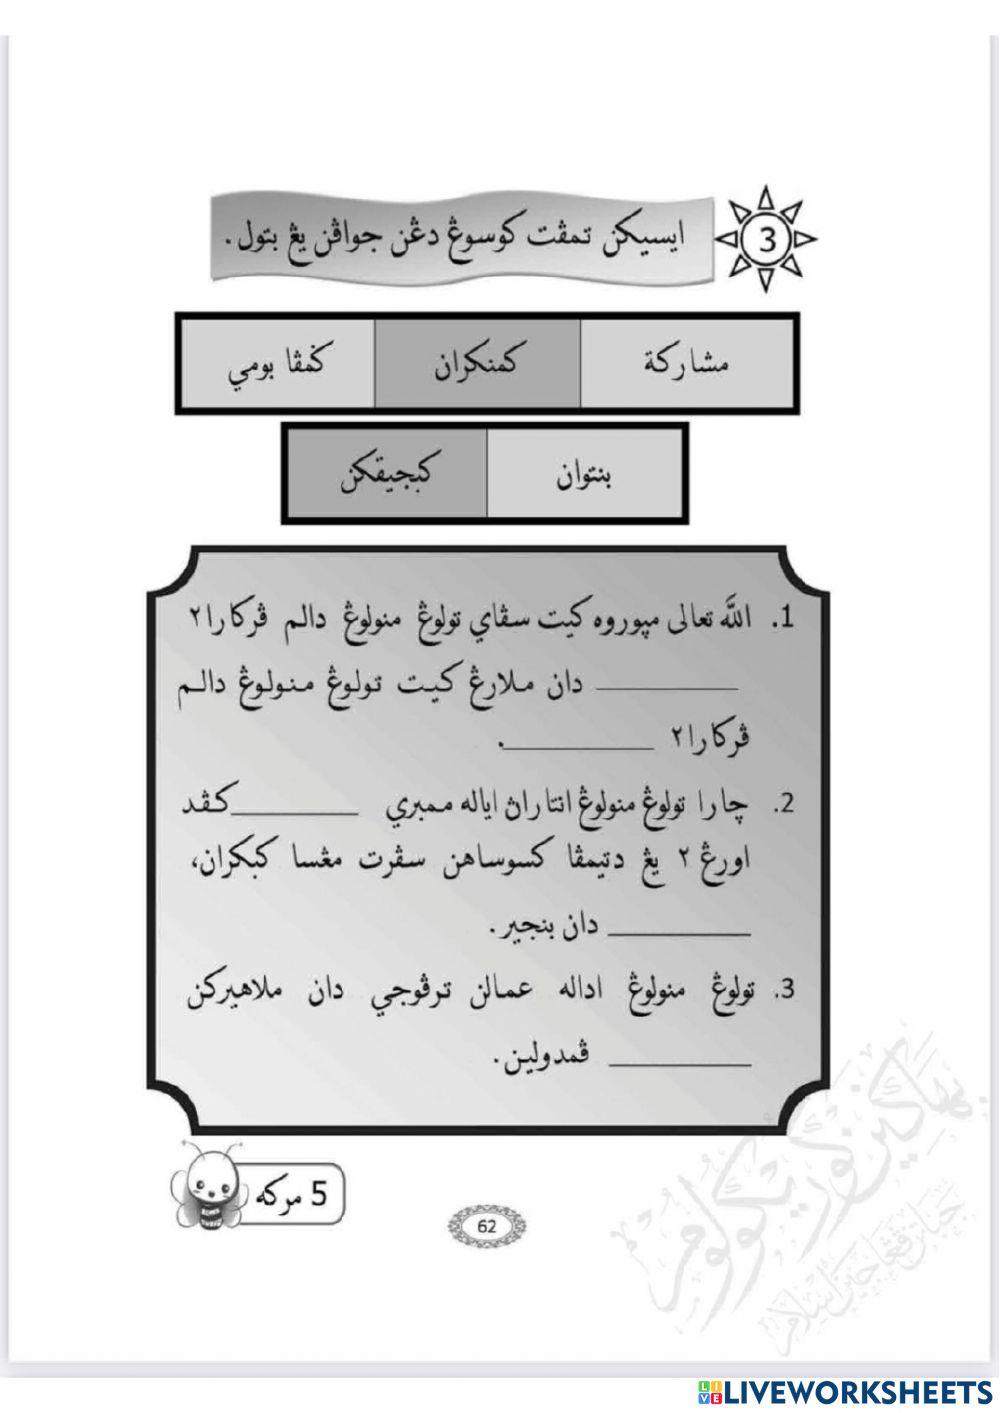 3
ايسيکن تمڤت کوسوڠ دڠن جواڤن يڠ بتول.
مشاركة کمنکران ݢمڤا بومي
بنتوان کبجيقکن
1. الله تعالى مڽوروه کيت سڤاي تولوڠ منولوڠ دالم ڤرکارا٢
__________ دان ملارڠ کيت تولوڠ منولوڠ دالم
ڤرکارا٢ __________.
2. چارا تولوڠ منولوڠ انتاراڽ اياله ممبري __________ کڤد
اورڠ ٢ يڠ دتيمڤا کسوساهن سڤرت مڠسا کبکران،
__________ دان بنجير.
3. تولوڠ منولوڠ اداله عمالن ترڤوجي دان ملاهيرکن
__________ ڤمدولين.
5 مرکه
62
LIVEWORKSHEETS